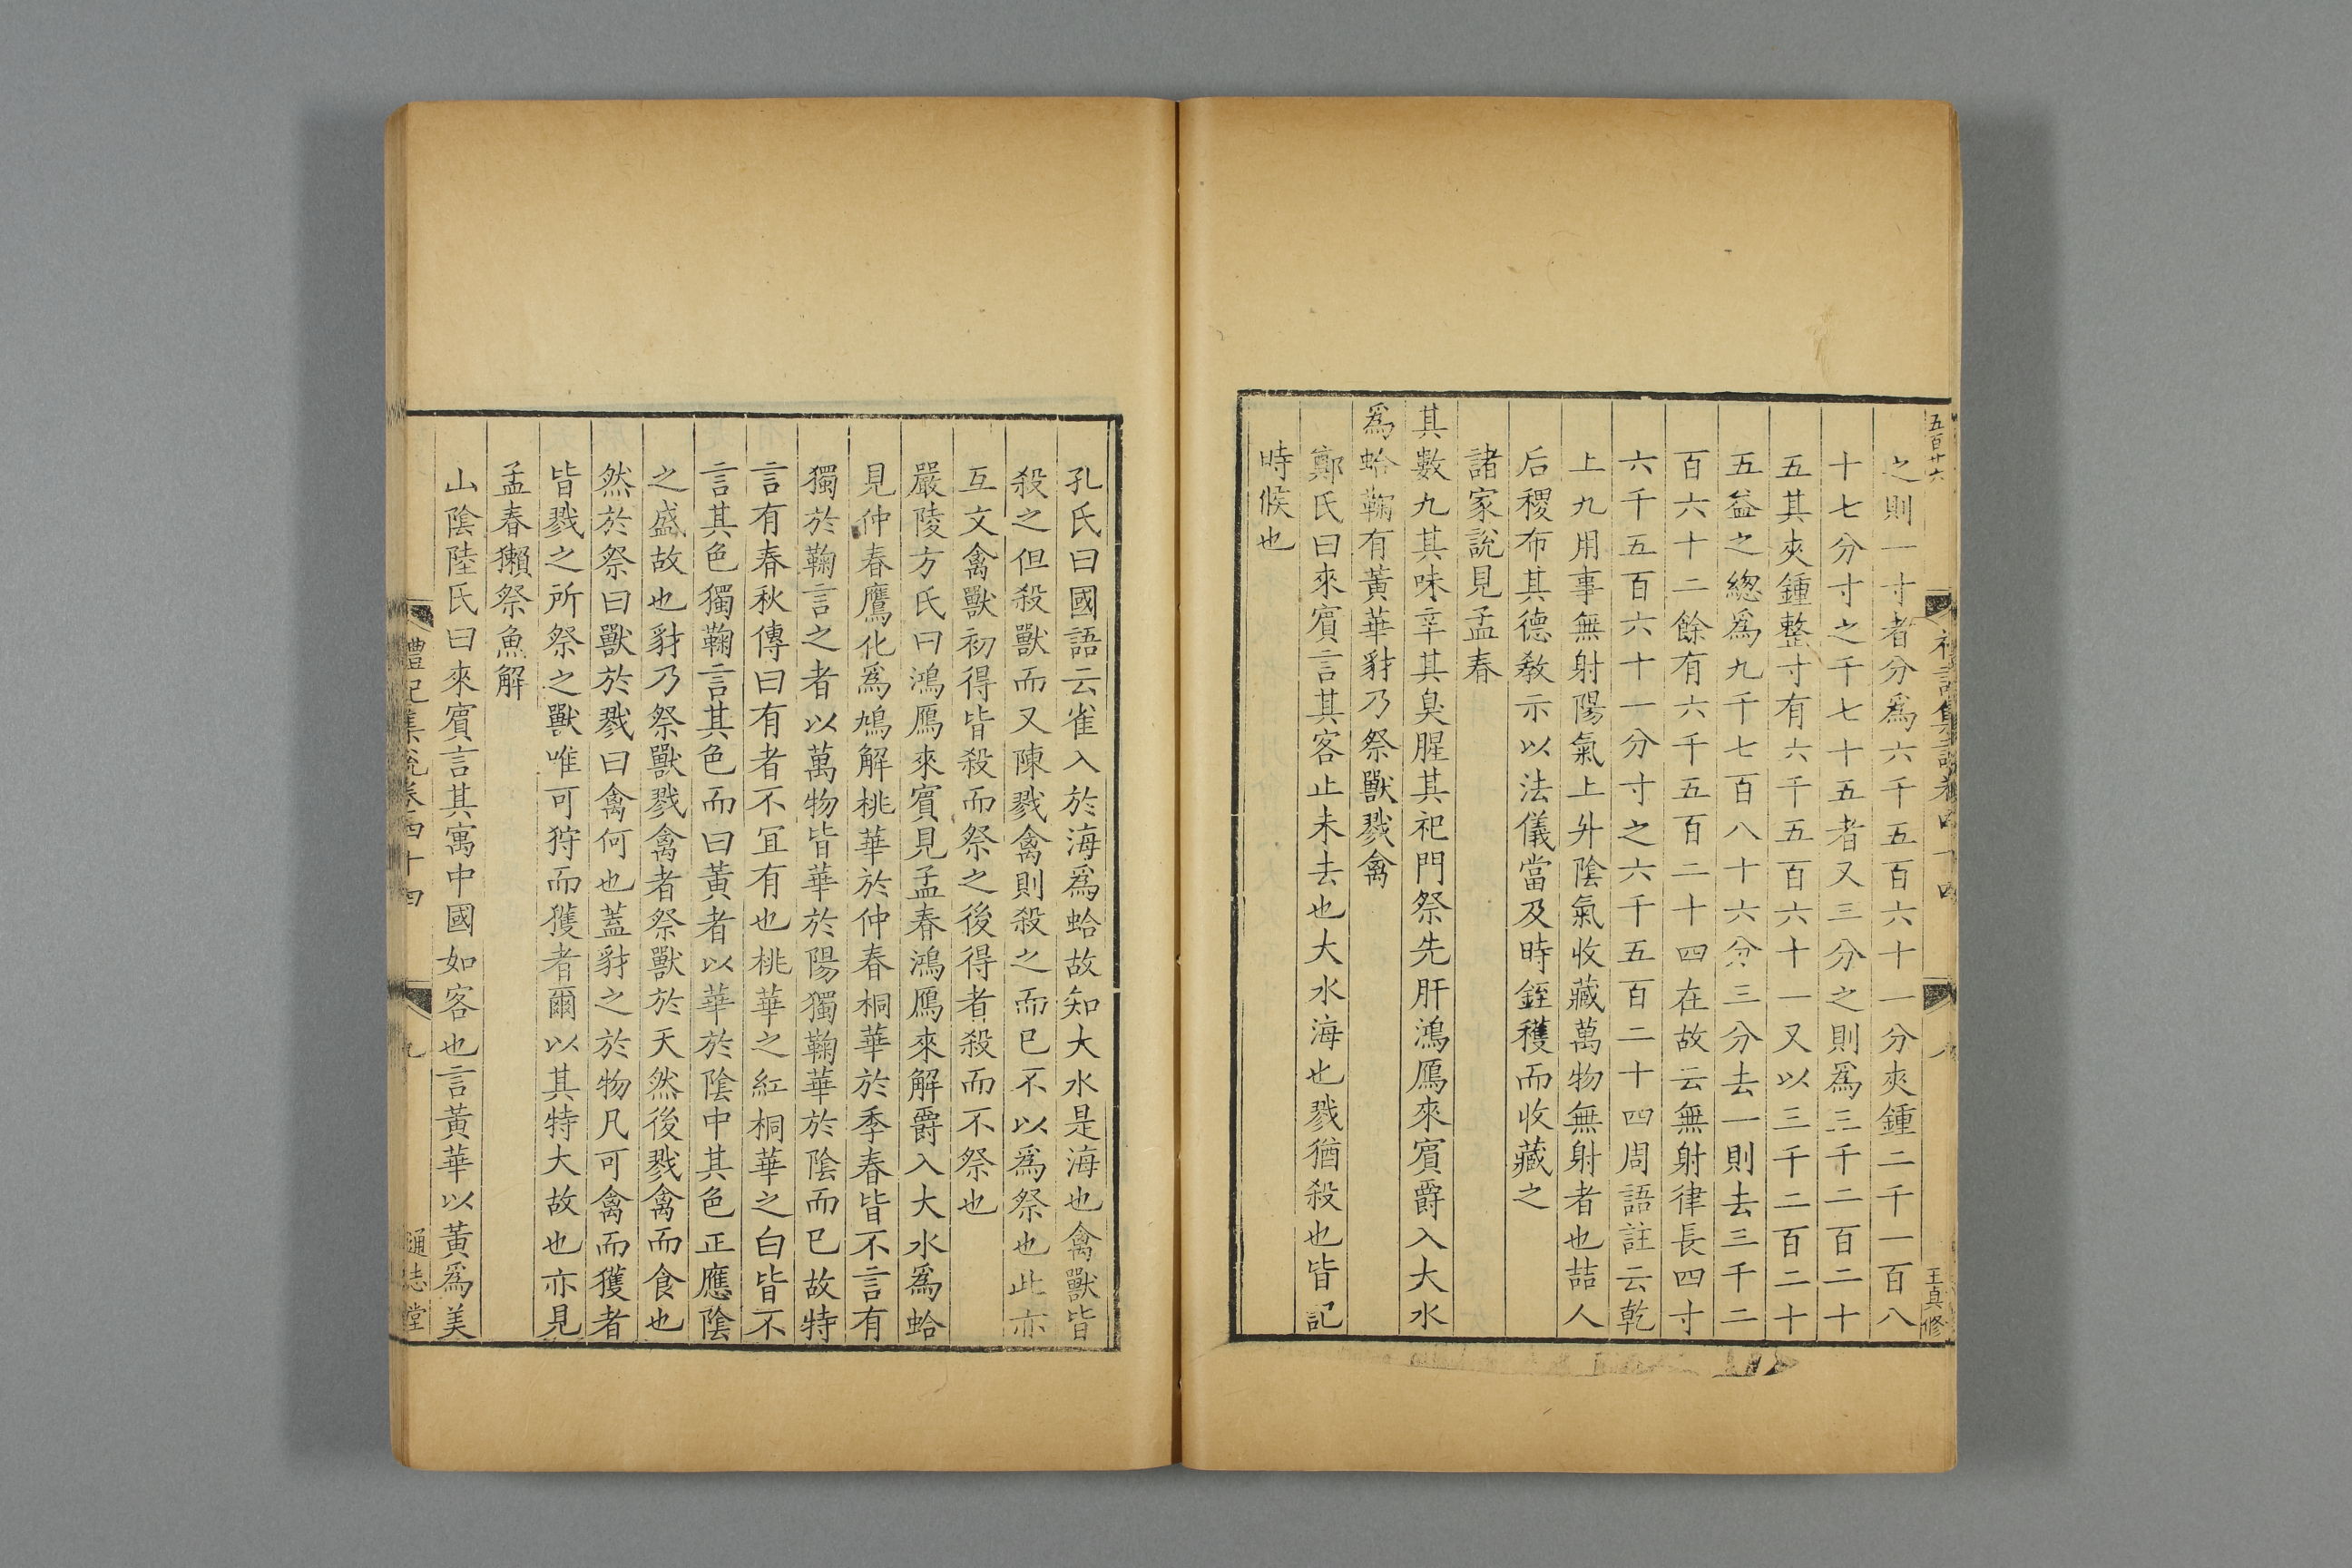 五百廿六
禮記集說卷四十四
八
王真修
之則一寸者分爲六千五百六十一分夾鍾二千一百八
十七分寸之千七十五者又三分之則爲三千二百二十
五其夾鍾整寸有六千五百六十一又以三千二百二十
五益之緫爲九千七百八十六分三分去一則去三千二
百六十二餘有六千五百二十四在故云無射律長四寸
六千五百六十一分寸之六千五百二十四周語註云乾
上九用事無射陽氣上升陰氣收藏萬物無射者也喆人
后稷布其德教示以法儀當及時銍穫而收藏之
諸家說見孟春
其數九其味辛其臭腥其祀門祭先肝鴻鴈來賓爵入大水
爲蛤鞠有黃華豺乃祭獸戮禽
鄭氏曰來賓言其客止未去也大水海也戮猶殺也皆記
時候也
孔氏曰國語云雀入於海爲蛤故知大水是海也禽獸皆
殺之但殺獸而又陳戮禽則殺之而已不以爲祭也此亦
互文禽獸初得皆殺而祭之後得者殺而不祭也
嚴陵方氏曰鴻鴈來賓見孟春鴻鴈來解爵入大水爲蛤
見仲春鷹化爲鳩解桃華於仲春桐華於季春皆不言有
獨於鞠言之者以萬物皆華於陽獨鞠華於陰而已故特
言有春秋傳曰有者不冝有也桃華之紅桐華之白皆不
言其色獨鞠言其色而曰黃者以華於陰中其色正應陰
之盛故也豺乃祭獸戮禽者祭獸於天然後戮禽而食也
然於祭曰獸於戮曰禽何也蓋豺之於物凡可禽而獲者
皆戮之所祭之獸唯可狩而獲者爾以其特大故也亦見
孟春獺祭魚解
山陰陸氏曰來賓言其寓中國如客也言黃華以黃爲美
禮記集說卷四十四
九
通志堂